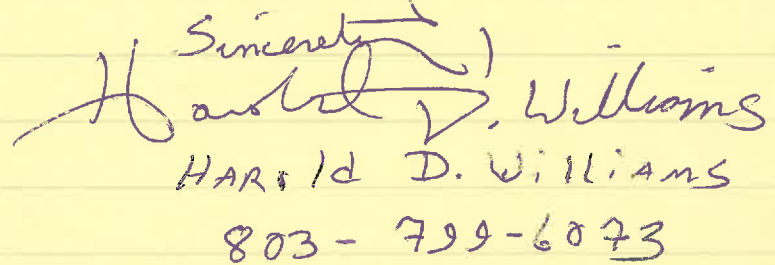 Sincerely,
Harold D. Williams
HARold D. WilliAmS
803-799-6073